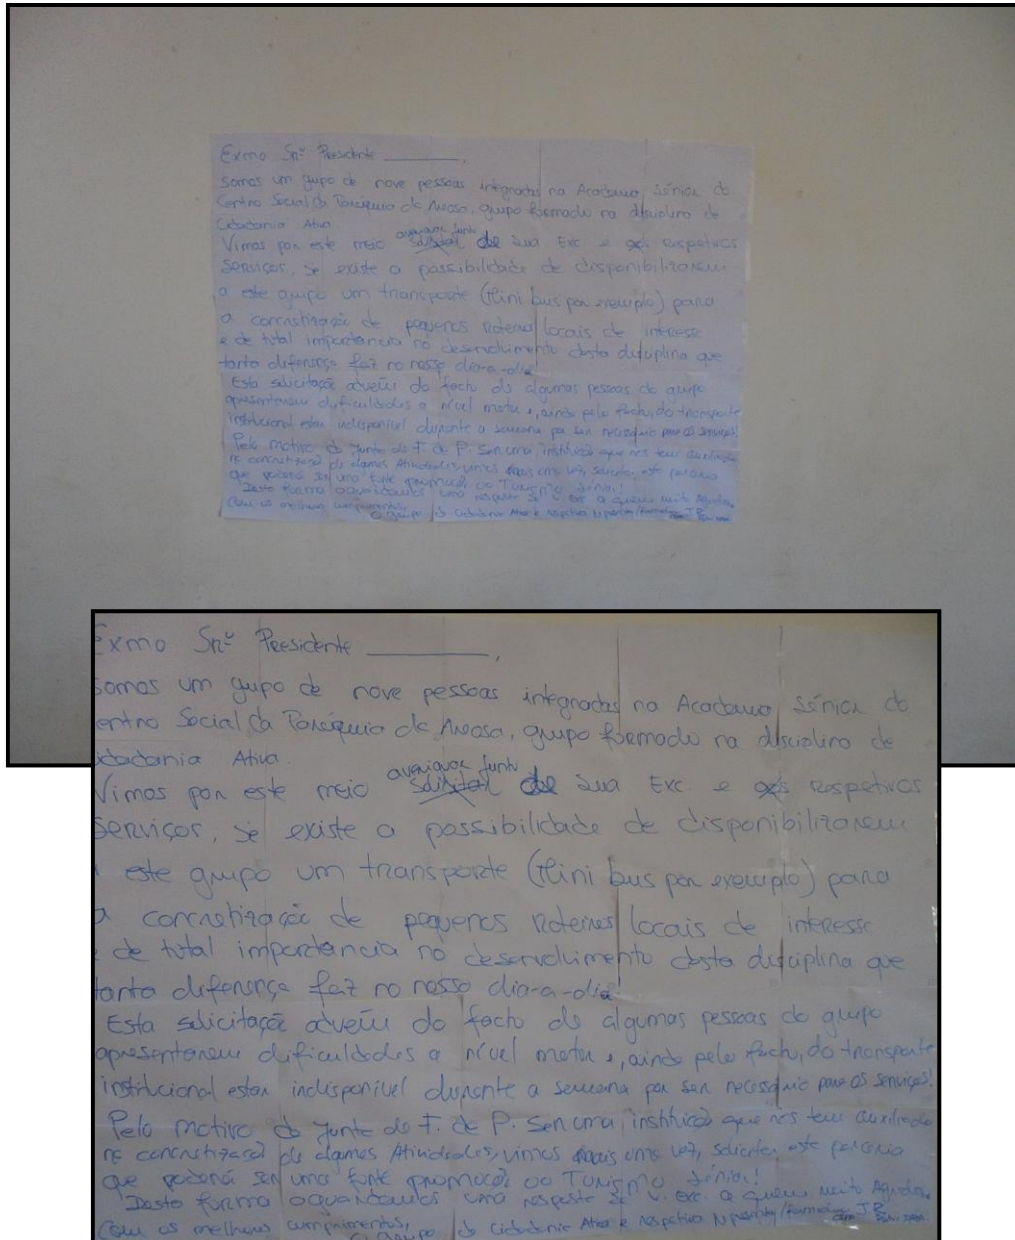 Exmo Snº Presidente _________,
Somos um grupo de nove pessoas integradas na Academia Sénior do
Centro Social da Paróquia de Areosa, grupo formado na disciplina de
Cidadania Ativa.
Vimos por este meio averiguar junto de sua Exc. e aos respetivos
serviços, se existe a possibilidade de disponibilizarem
a este grupo um transporte (Mini bus por exemplo) para
a concretização de pequenos roteiros locais de interesse
e de total importancia no desenvolvimento desta disciplina que
tanta diferença faz no nosso dia-a-dia!
Esta solicitação advém do facto de algumas pessoas do grupo
apresentarem dificuldades a nível motor e, ainda pelo facto, do transporte
institucional estar indisponível durante a semana por ser necessário para os serviços!
Pelo motivo da Junta de F. de P. ser uma instituição que nos tem auxiliado
na concretização de algumas Atividades, vimos mais uma vez, solicitar, esta parceria
que poderá ser uma fonte promoção ao Turismo Sénior!
Desta forma aguardamos uma resposta de V. exc. a quem muito Agradec.
Com os melhores cumprimentos,
O grupo de Cidadania Ativa e respetiva
Exmo Snº Presidente _________,
somos um grupo de nove pessoas integradas na Academia Sénior do
entro Social da Paróquia de Areosa, grupo formado na disciplina de
idadania Ativa.
Vimos por este meio averiguar junto de sua Exc. e aos respetivos
serviços, se existe a possibilidade de disponibilizarem
este grupo um transporte (Mini bus por exemplo) para
a concretização de pequenos roteiros locais de interesse
e de total importancia no desenvolvimento desta disciplina que
tanta diferença faz no nosso dia-a-dia!
Esta solicitação advém do facto de algumas pessoas do grupo
apresentarem dificuldades a nível motor e, ainda pelo facto, do transporte
institucional estar indisponível durante a semana por ser necessário para os serviços!
Pelo motivo da Junta de F. de P. ser uma instituição que nos tem auxiliado
na concretização de algumas Atividades, vimos mais uma vez, solicitar, esta parceria
que poderá ser uma fonte promoção ao Turismo Sénior!
Desta forma aguardamos uma resposta de V. exc. a quem muito Agradec.
Com os melhores cumprimentos,
O grupo de Cidadania Ativa e respetiva